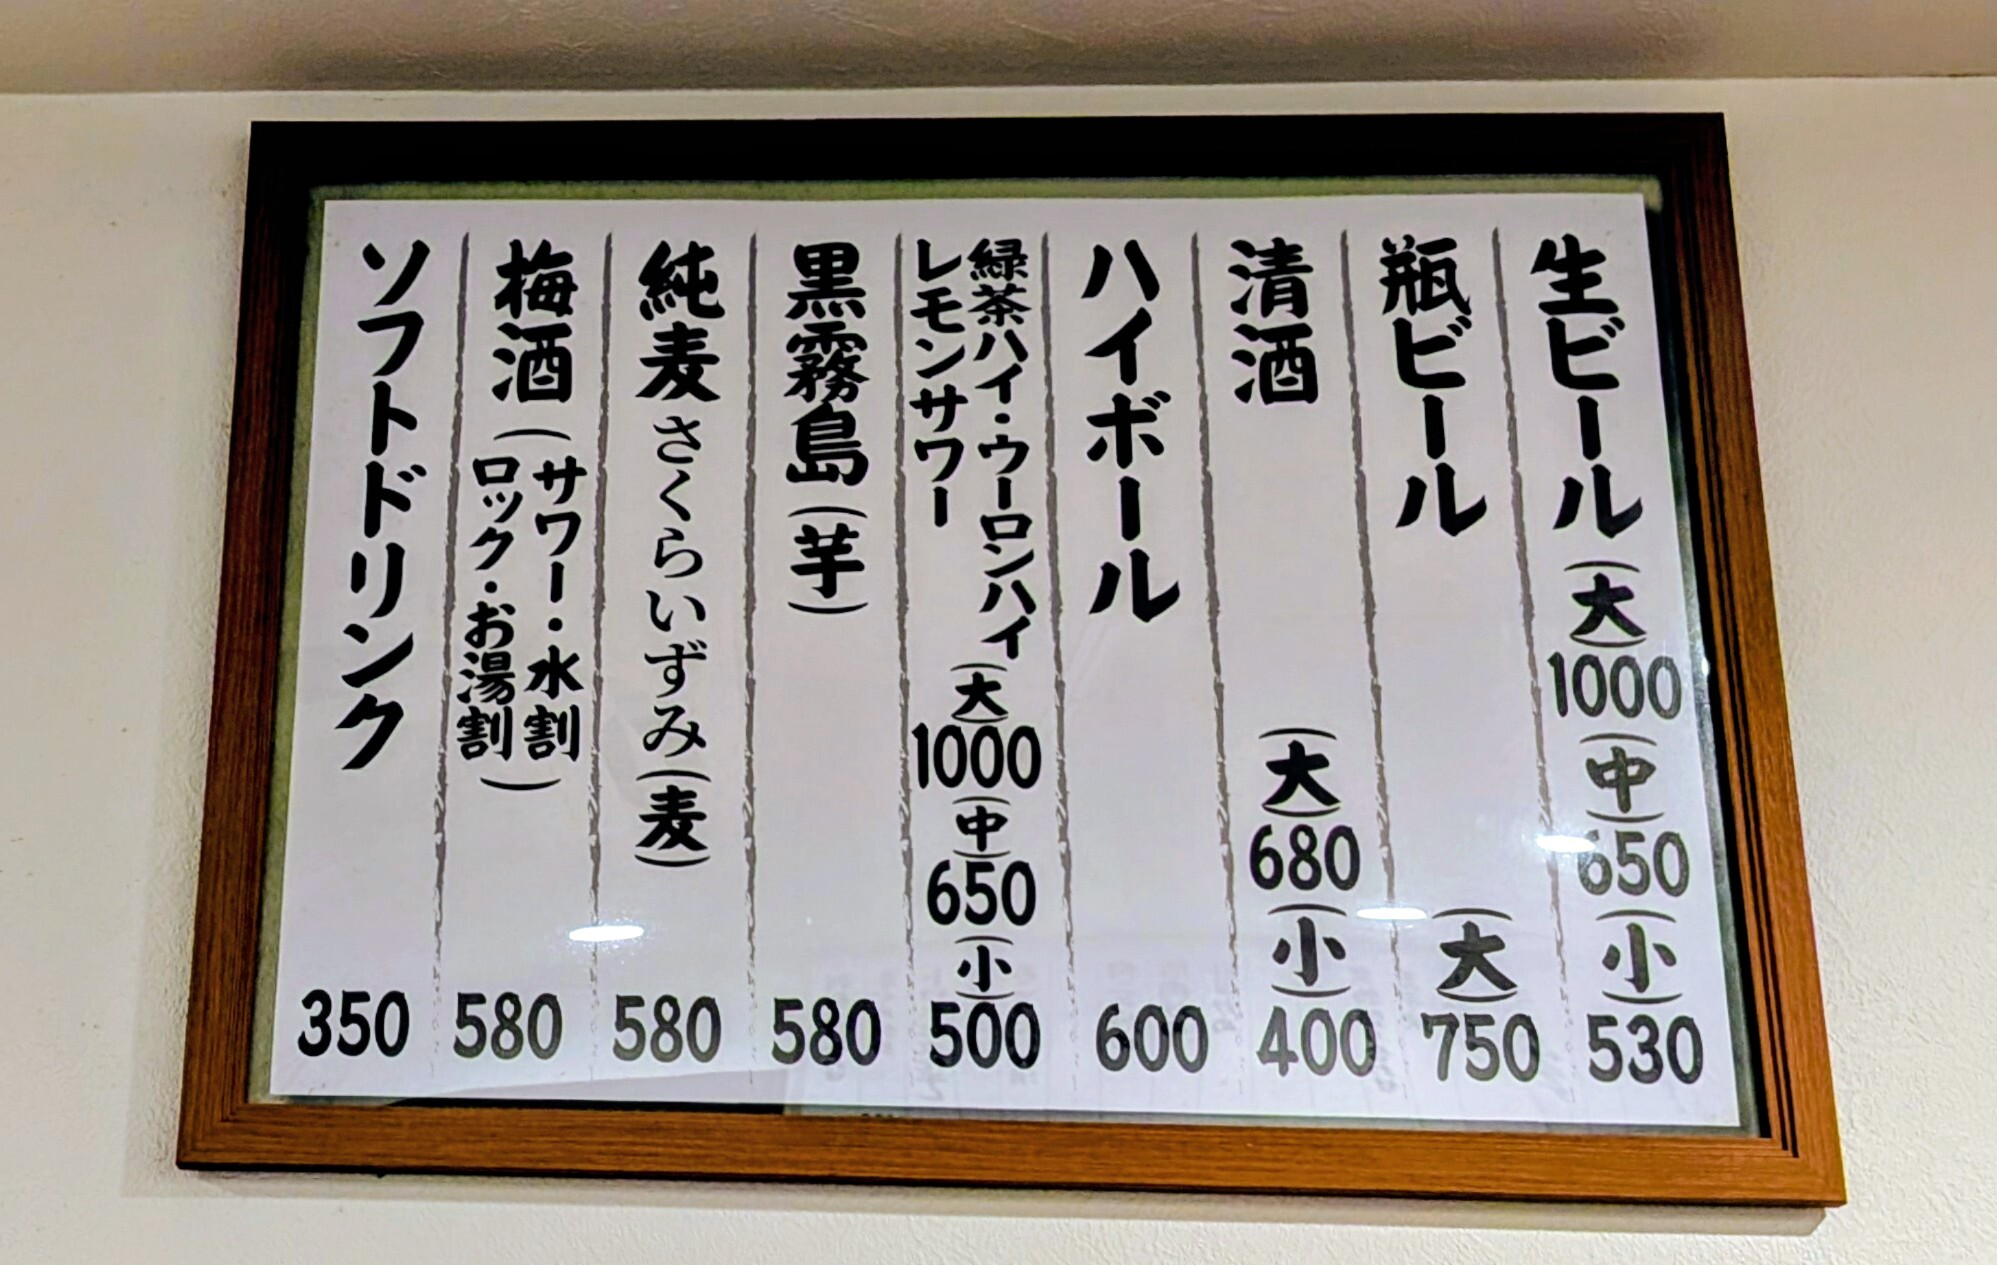 生ビール(大)1000(中)650(小)530
瓶ビール(大)750
清酒(大)680(小)400
ハイボール600
緑茶ハイ・ウーロンハイ
レモンサワー
(大)1000(中)650(小)500
黒霧島(芋)580
純麦さくらいずみ(麦)580
梅酒(サワー・水割
ロック・お湯割)580
ソフトドリンク350